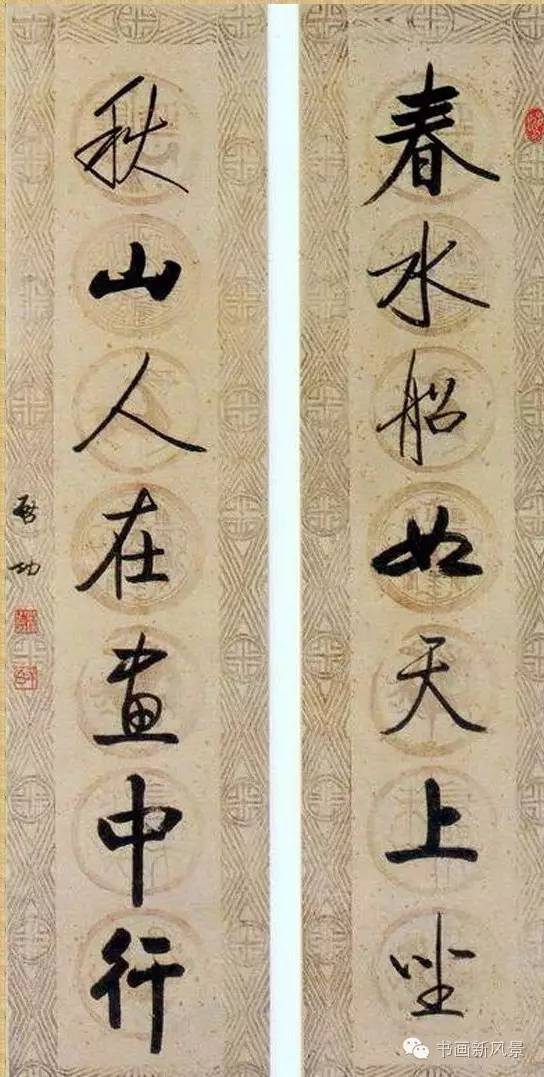 春水船如天上坐
秋山人在画中行
启功
书画新风景